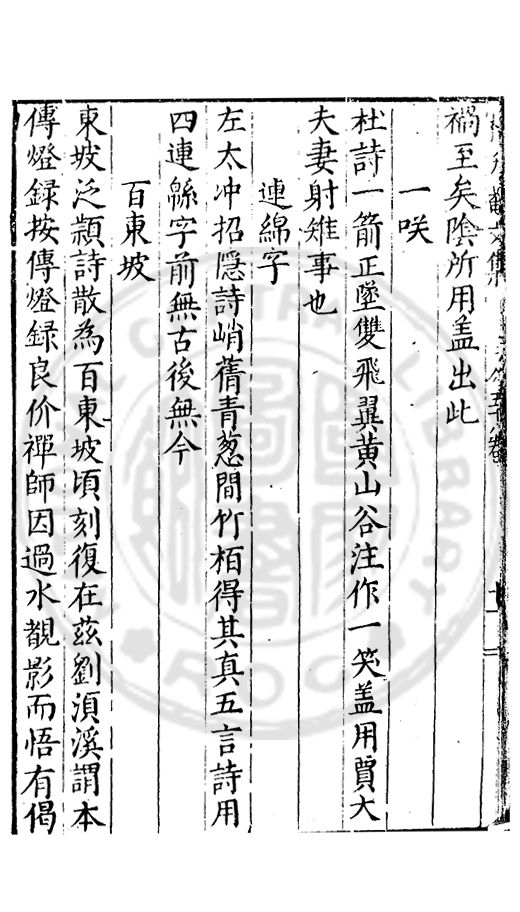 禍至矣陰所用盖出此
一咲
杜詩一箭正墜雙飛翼黃山谷注作一笑盖用賈大
夫妻射雉事也
連綿字
左太冲招隠詩峭蒨青葱間竹栢得其真五言詩用
四連緜字前無古後無今
百東坡
東坡泛潁詩散為百東坡頃刻復在茲劉湏溪謂本
傳燈録按傳燈録良价禪師因過水覩影而悟有偈